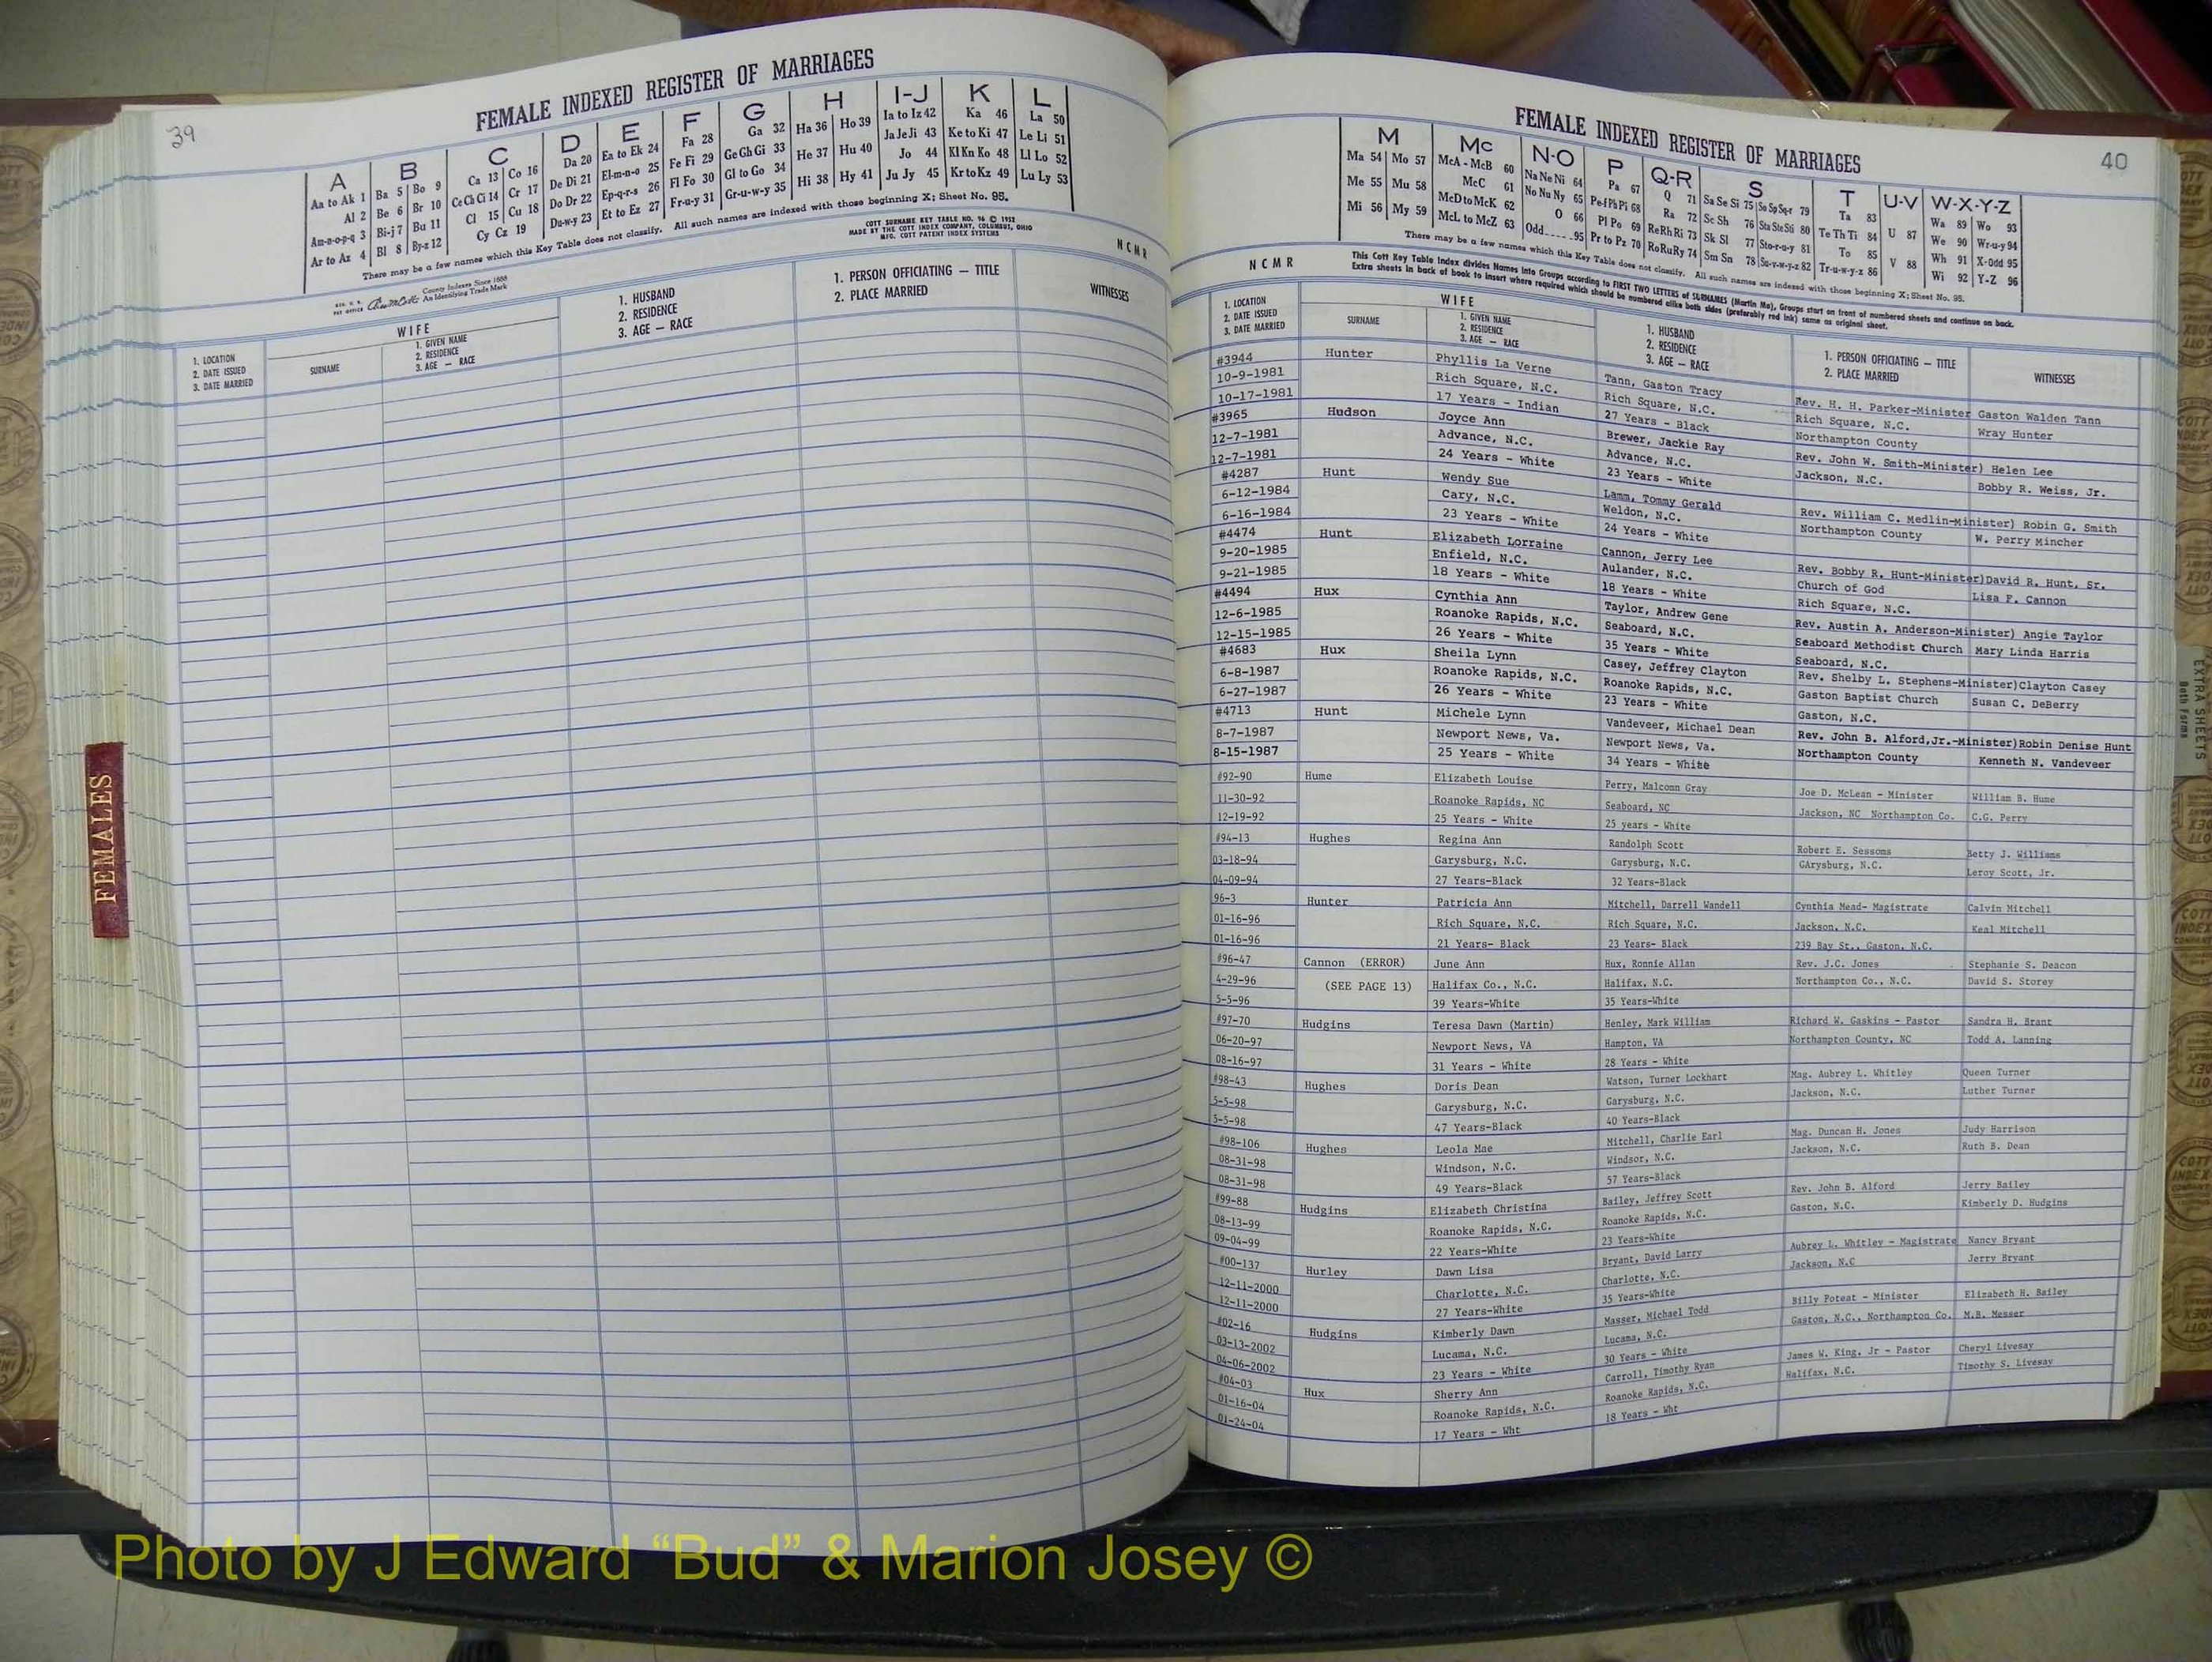 39
FEMALE INDEXED REGISTER OF MARRIAGES
A B C D E F G H I-J K L
Aa to Ak 1 Ba 5 Bo 9 Ca 13 Co 16 Da 20 Ea to Ek 24 Fa 28 Ga 32 Ha 36 Ho 39 Ia to Iz 42 Ka 46 La 50
Al 2 Be 6 Br 10 Ce Ch Ci 14 Cr 17 De Di 21 El-m-n-o 25 Fe Fi 29 Ge Gh Gi 33 He 37 Hu 40 Ja Je Ji 43 Ke to Ki 47 Le Li 51
Am-n-o-p-q 3 Bi-j 7 Bu 11 Cl 15 Cu 18 Do Dr 22 Ep-q-r-s 26 Fl Fo 30 Gl to Go 34 Hi 38 Hy 41 Jo 44 Kl Kn Ko 48 Ll Lo 52
Ar to Az 4 Bl 8 By-z 12 Cy Cz 19 Du-w-y 23 Et to Ez 27 Fr-u-y 31 Gr-u-w-y 35 Ju Jy 45 Kr to Kz 49 Lu Ly 53
There may be a few names which this Key Table does not classify. All such names are indexed with those beginning X; Sheet No. 95.
COTT SURNAME KEY TABLE NO. 96 © 1952
MADE BY THE COTT INDEX COMPANY, COLUMBUS, OHIO
MFG. COTT PATENT INDEX SYSTEMS
County Indexes Since 1888
An Identifying Trade Mark
N C M R
1. LOCATION
2. DATE ISSUED
3. DATE MARRIED
WIFE
SURNAME
1. GIVEN NAME
2. RESIDENCE
3. AGE — RACE
1. HUSBAND
2. RESIDENCE
3. AGE — RACE
1. PERSON OFFICIATING — TITLE
2. PLACE MARRIED
WITNESSES
FEMALES
FEMALE INDEXED REGISTER OF MARRIAGES
40
M Mc N-O P Q-R S T U-V W-X-Y-Z
Ma 54 Mo 57 McA - McB 60 Na Ne Ni 64 Pa 67 Q 71 Sa Se Si 75 So Sp Sq-r 79 Ta 83 U 87 Wa 89 Wo 93
Me 55 Mu 58 McC 61 No Nu Ny 65 Pe-f Ph Pi 68 Ra 72 Sc Sh 76 Sta Ste Sti 80 Te Th Ti 84 V 88 We 90 Wr-u-y 94
Mi 56 My 59 McD to McK 62 O 66 Pl Po 69 Re Rh Ri 73 Sk Sl 77 Sto-r-u-y 81 To 85 Wh 91 X-Odd 95
McL to McZ 63 Odd 95 Pr to Pz 70 Ro Ru Ry 74 Sm Sn 78 Su-v-w-y-z 82 Tr-u-w-y-z 86 Wi 92 Y-Z 96
There may be a few names which this Key Table does not classify. All such names are indexed with those beginning X; Sheet No. 95.
This Cott Key Table Index divides Names into Groups according to FIRST TWO LETTERS of SURNAMES (Martin Ma), Groups start on front of numbered sheets and continue on back.
Extra sheets in back of book to insert where required which should be numbered alike both sides (preferably red ink) same as original sheet.
N C M R
1. LOCATION
2. DATE ISSUED
3. DATE MARRIED
WIFE
SURNAME
1. GIVEN NAME
2. RESIDENCE
3. AGE — RACE
1. HUSBAND
2. RESIDENCE
3. AGE — RACE
1. PERSON OFFICIATING — TITLE
2. PLACE MARRIED
WITNESSES
#3944 Hunter Phyllis La Verne Tann, Gaston Tracy Rev. H. H. Parker-Minister Gaston Walden Tann
10-9-1981 Rich Square, N.C. Rich Square, N.C. Rich Square, N.C. Wray Hunter
10-17-1981 17 Years - Indian 27 Years - Black Northampton County
#3965 Hudson Joyce Ann Brewer, Jackie Ray Rev. John W. Smith-Minister) Helen Lee
12-7-1981 Advance, N.C. Advance, N.C. Jackson, N.C. Bobby R. Weiss, Jr.
12-7-1981 24 Years - White 23 Years - White
#4287 Hunt Wendy Sue Lamm, Tommy Gerald Rev. William C. Medlin-Minister) Robin G. Smith
6-12-1984 Cary, N.C. Weldon, N.C. Northampton County W. Perry Mincher
6-16-1984 23 Years - White 24 Years - White
#4474 Hunt Elizabeth Lorraine Cannon, Jerry Lee Rev. Bobby R. Hunt-Minister)David R. Hunt, Sr.
9-20-1985 Enfield, N.C. Aulander, N.C. Church of God Lisa F. Cannon
9-21-1985 18 Years - White 18 Years - White Rich Square, N.C.
#4494 Hux Cynthia Ann Taylor, Andrew Gene Rev. Austin A. Anderson-Minister) Angie Taylor
12-6-1985 Roanoke Rapids, N.C. Seaboard, N.C. Seaboard Methodist Church Mary Linda Harris
12-15-1985 26 Years - White 35 Years - White Seaboard, N.C.
#4683 Hux Sheila Lynn Casey, Jeffrey Clayton Rev. Shelby L. Stephens-Minister)Clayton Casey
6-8-1987 Roanoke Rapids, N.C. Roanoke Rapids, N.C. Gaston Baptist Church Susan C. DeBerry
6-27-1987 26 Years - White 23 Years - White Gaston, N.C.
#4713 Hunt Michele Lynn Vandeveer, Michael Dean Rev. John B. Alford,Jr.-Minister)Robin Denise Hunt
8-7-1987 Newport News, Va. Newport News, Va. Northampton County Kenneth N. Vandeveer
8-15-1987 25 Years - White 34 Years - White
#92-90 Hume Elizabeth Louise Perry, Malcomn Gray Joe D. McLean - Minister William B. Hume
11-30-92 Roanoke Rapids, NC Seaboard, NC Jackson, NC Northampton Co. C.G. Perry
12-19-92 25 Years - White 25 years - White
#94-13 Hughes Regina Ann Randolph Scott Robert E. Sessoms Betty J. Williams
03-18-94 Garysburg, N.C. Garysburg, N.C. GArysburg, N.C. Leroy Scott, Jr.
04-09-94 27 Years-Black 32 Years-Black
96-3 Hunter Patricia Ann Mitchell, Darrell Wandell Cynthia Mead- Magistrate Calvin Mitchell
01-16-96 Rich Square, N.C. Rich Square, N.C. Jackson, N.C. Keal Mitchell
01-16-96 21 Years- Black 23 Years- Black 239 Bay St., Gaston, N.C.
#96-47 Cannon (ERROR) June Ann Hux, Ronnie Allan Rev. J.C. Jones Stephanie S. Deacon
4-29-96 (SEE PAGE 13) Halifax Co., N.C. Halifax, N.C. Northampton Co., N.C. David S. Storey
5-5-96 39 Years-White 35 Years-White
#97-70 Hudgins Teresa Dawn (Martin) Henley, Mark William Richard W. Gaskins - Pastor Sandra H. Brant
06-20-97 Newport News, VA Hampton, VA Northampton County, NC Todd A. Lanning
08-16-97 31 Years - White 28 Years - White
#98-43 Hughes Doris Dean Watson, Turner Lockhart Mag. Aubrey L. Whitley Queen Turner
5-5-98 Garysburg, N.C. Garysburg, N.C. Jackson, N.C. Luther Turner
5-5-98 47 Years-Black 40 Years-Black
#98-106 Hughes Leola Mae Mitchell, Charlie Earl Mag. Duncan H. Jones Judy Harrison
08-31-98 Windson, N.C. Windsor, N.C. Jackson, N.C. Ruth B. Dean
08-31-98 49 Years-Black 57 Years-Black
#99-88 Hudgins Elizabeth Christina Bailey, Jeffrey Scott Rev. John B. Alford Jerry Bailey
08-13-99 Roanoke Rapids, N.C. Roanoke Rapids, N.C. Gaston, N.C. Kimberly D. Hudgins
09-04-99 22 Years-White 23 Years-White
#00-137 Hurley Dawn Lisa Bryant, David Larry Aubrey L. Whitley - Magistrate Nancy Bryant
12-11-2000 Charlotte, N.C. Charlotte, N.C. Jackson, N.C Jerry Bryant
12-11-2000 27 Years-White 35 Years-White
#02-16 Hudgins Kimberly Dawn Masser, Michael Todd Billy Poteat - Minister Elizabeth H. Bailey
03-13-2002 Lucama, N.C. Lucama, N.C. Gaston, N.C., Northampton Co. M.B. Messer
04-06-2002 23 Years - White 30 Years - White
#04-03 Hux Sherry Ann Carroll, Timothy Ryan James W. King, Jr - Pastor Cheryl Livesay
01-16-04 Roanoke Rapids, N.C. Roanoke Rapids, N.C. Halifax, N.C. Timothy S. Livesay
01-24-04 17 Years - Wht 18 Years - Wht
EXTRA SHEETS
Both Forms
Photo by J Edward “Bud” & Marion Josey ©